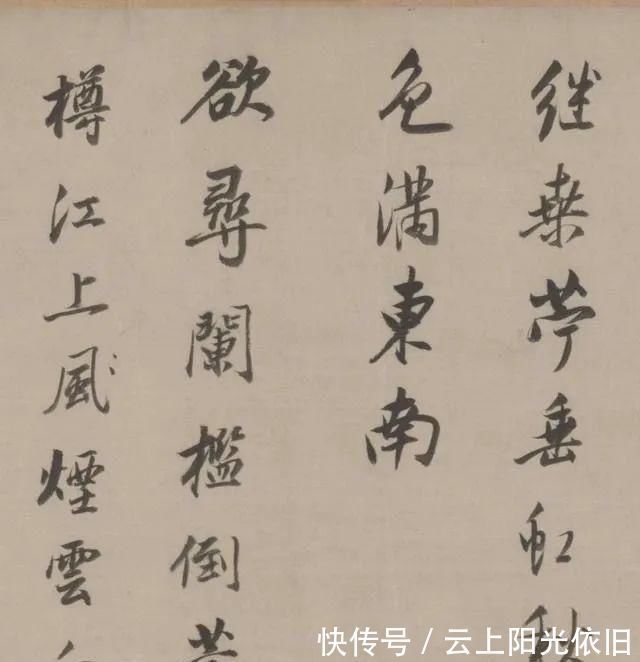 继桒苧垂虹秋
色满東南
欲尋闌檻倒
樽江上風煙雲
快传号 / 云上阳光依旧